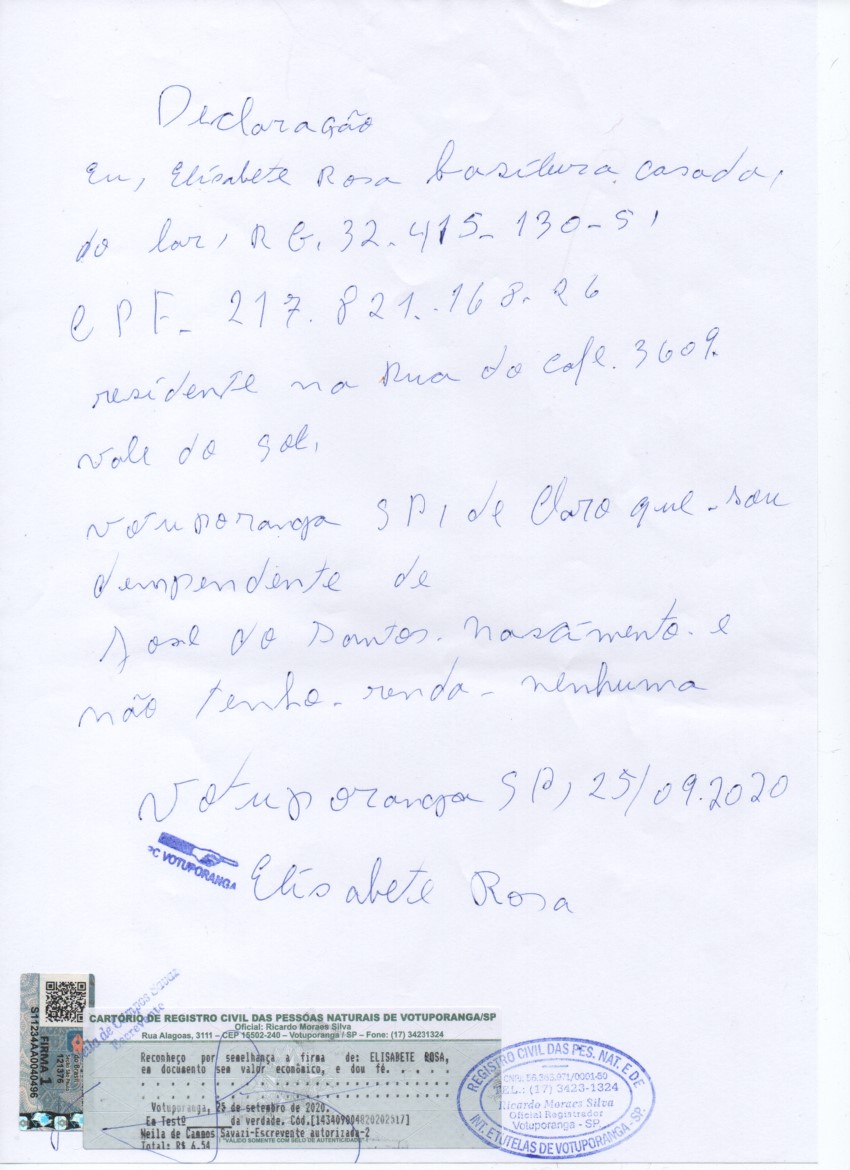 Declaração
Eu, Elisabete Rosa brasileira, casada,
do lar, RG. 32-415-130-5,
CPF- 217.821.168-26
residente na Rua do café. 3609.
Vale do Sol,
Votuporanga SP, de Claro que sou
dempendente de
José do Santos. nascimento. e
não tenho. renda- nenhuma
Votuporanga SP, 25/09.2020
PC VOTUPORANGA
Elisabete Rosa
de Campos Savaz
Escrevente
S11234AA0040496
FIRMA 1
121376
CARTÓRIO DE REGISTRO CIVIL DAS PESSOAS NATURAIS DE VOTUPORANGA/SP
Oficial: Ricardo Moraes Silva
Rua Alagoas, 3111 – CEP 15502-240 – Votuporanga / SP – Fone: (17) 34231324
Reconheço por semelhança a firma de: ELISABETE ROSA,
em documento sem valor econômico, e dou fé. . . . .
Votuporanga, 25 de setembro de 2020.
Em Testº da verdade. Cód.[143409004820202517]
Neila de Campos Savazi-Escrevente autorizada-2
Total: R$ 6,54 "VALIDO SOMENTE COM SELO DE AUTENTICIDADE"
REGISTRO CIVIL DAS PES. NAT. E DE
TEL.: (17) 3423-1324
Ricardo Moraes Silva
Oficial Registrador
Votuporanga - SP.
INT. E TUTELAS DE VOTUPORANGA - SP.